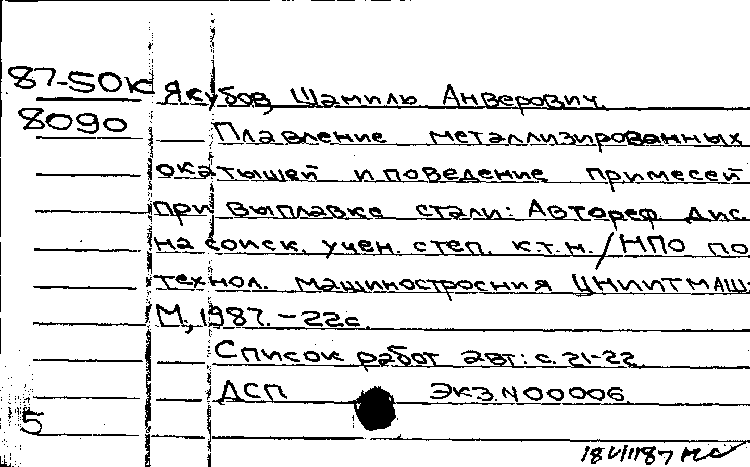 87-50к Якубов, Шамиль Анверович.
8090 Плавление металлизированных
окатышей и поведение примесей
при выплавке стали: Автореф. дис.
на соиск. учен. степ. к.т.н. / НПО по
технол. машиностроения ЦНИИТМАШ.
М., 1987. - 22с.
Список работ авт: с. 21-22
ДСП Экз. N00006
5